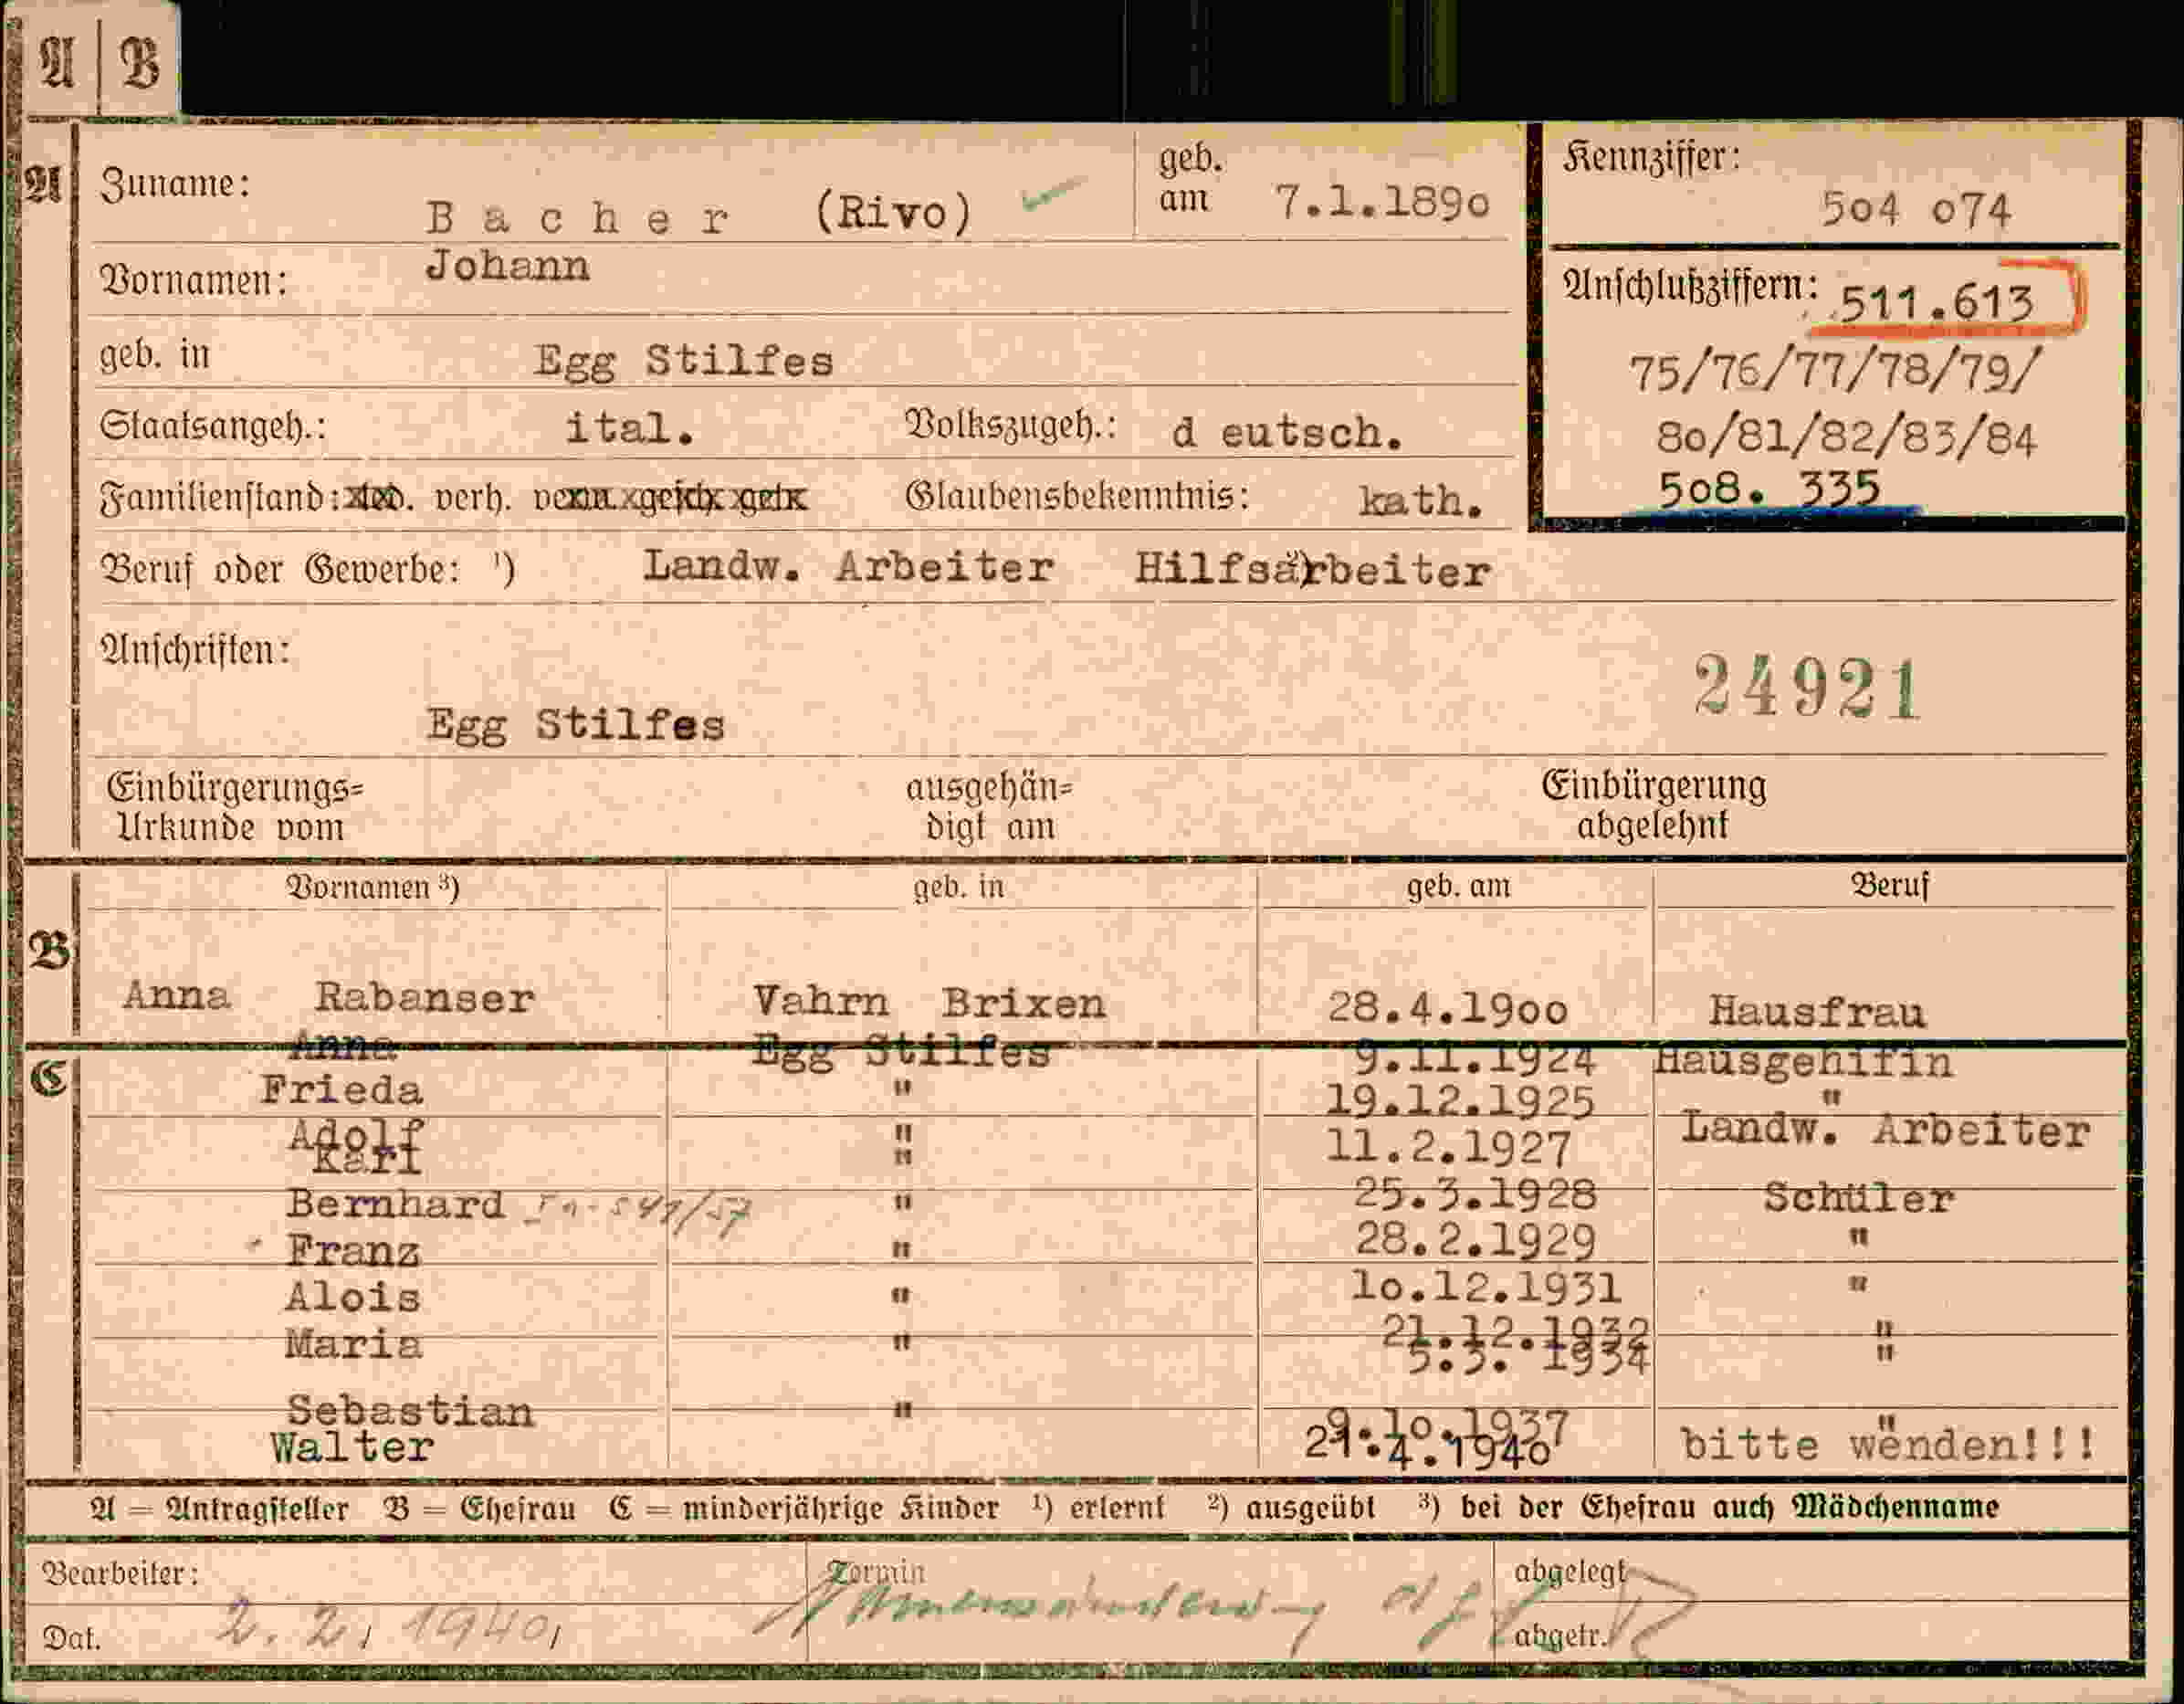 A | B
A Zuname: Bacher (Rivo) geb. am 7.1.1890 Kennziffer: 504 074
Vornamen: Johann Anschlußziffern: 511.613
geb. in Egg Stilfes 75/76/77/78/79/
Staatsangeh.: ital. Volkszugeh.: d eutsch. 80/81/82/83/84
Familienstand: led. verh. verw. gesch. getr. Glaubensbekenntnis: kath. 508. 335
Beruf oder Gewerbe: ¹) Landw. Arbeiter Hilfsarbeiter
Anschriften: 24921
Egg Stilfes
Einbürgerungs= ausgehän= Einbürgerung
Urkunde vom digt am abgelehnt
B Vornamen ³) geb. in geb. am Beruf
Anna Rabanser Vahrn Brixen 28.4.1900 Hausfrau
Anna Egg Stilfes 9.11.1924 Hausgehifin
C Frieda " 19.12.1925 "
Adolf " 11.2.1927 Landw. Arbeiter
Karl "
Bernhard " 25.3.1928 Schüler
Franz " 28.2.1929 "
Alois " 10.12.1931 "
Maria " 21.12.1932 "
5.3.1934 "
Sebastian " 9.10.1937 "
Walter 21.4.1940 bitte wenden!!!
A = Antragsteller B = Ehefrau C = minderjährige Kinder ¹) erlernt ²) ausgeübt ³) bei der Ehefrau auch Mädchenname
Bearbeiter: Termin abgelegt
Dat. 2.2.1940, abgetr.